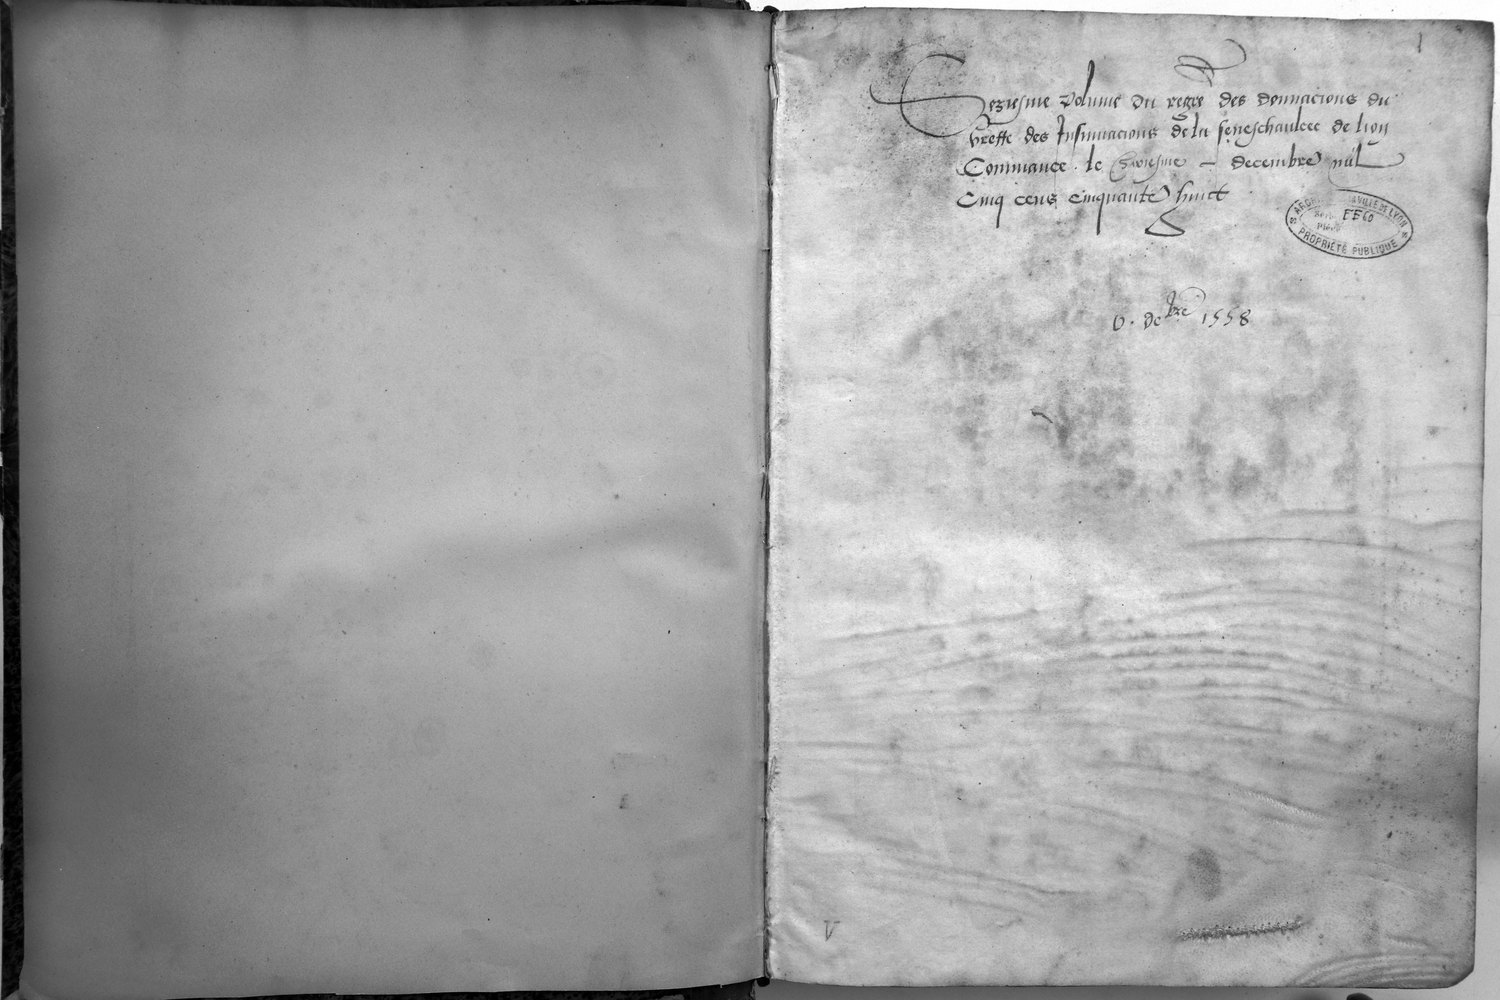 1
Seziesme volume du regre des donnacions du
greffe des Insinuacions de la seneschaulcee de lion
Commance le decembre mil
Cinq cens cinquante huict
ARCHIVES DE LA VILLE DE LYON
Série EE60
Pièce
PROPRIÉTÉ PUBLIQUE
V. de bre 1558
V